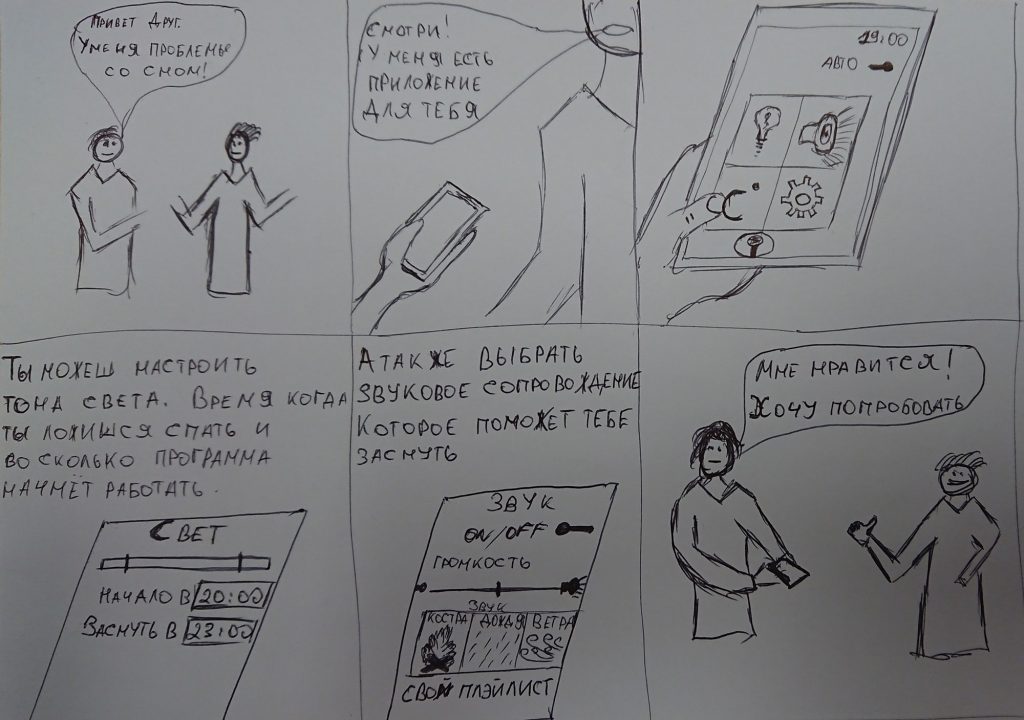 Привет Друг.
У меня проблемы
со сном!
Смотри!
У меня есть
приложение
для тебя
19:00
Авто
C°
Ты можеш настроить
тона света. Время когда
ты ложишся спать и
во сколько программа
начнёт работать.
Свет
Начало в 20:00
Заснуть в 23:00
А также выбрать
звуковое сопровождение
которое поможет тебе
заснуть
Звук
ON/OFF
Громкость
Звук
Костра Дождя Ветра
Свой плэйлист
Мне нравится!
Хочу попробовать